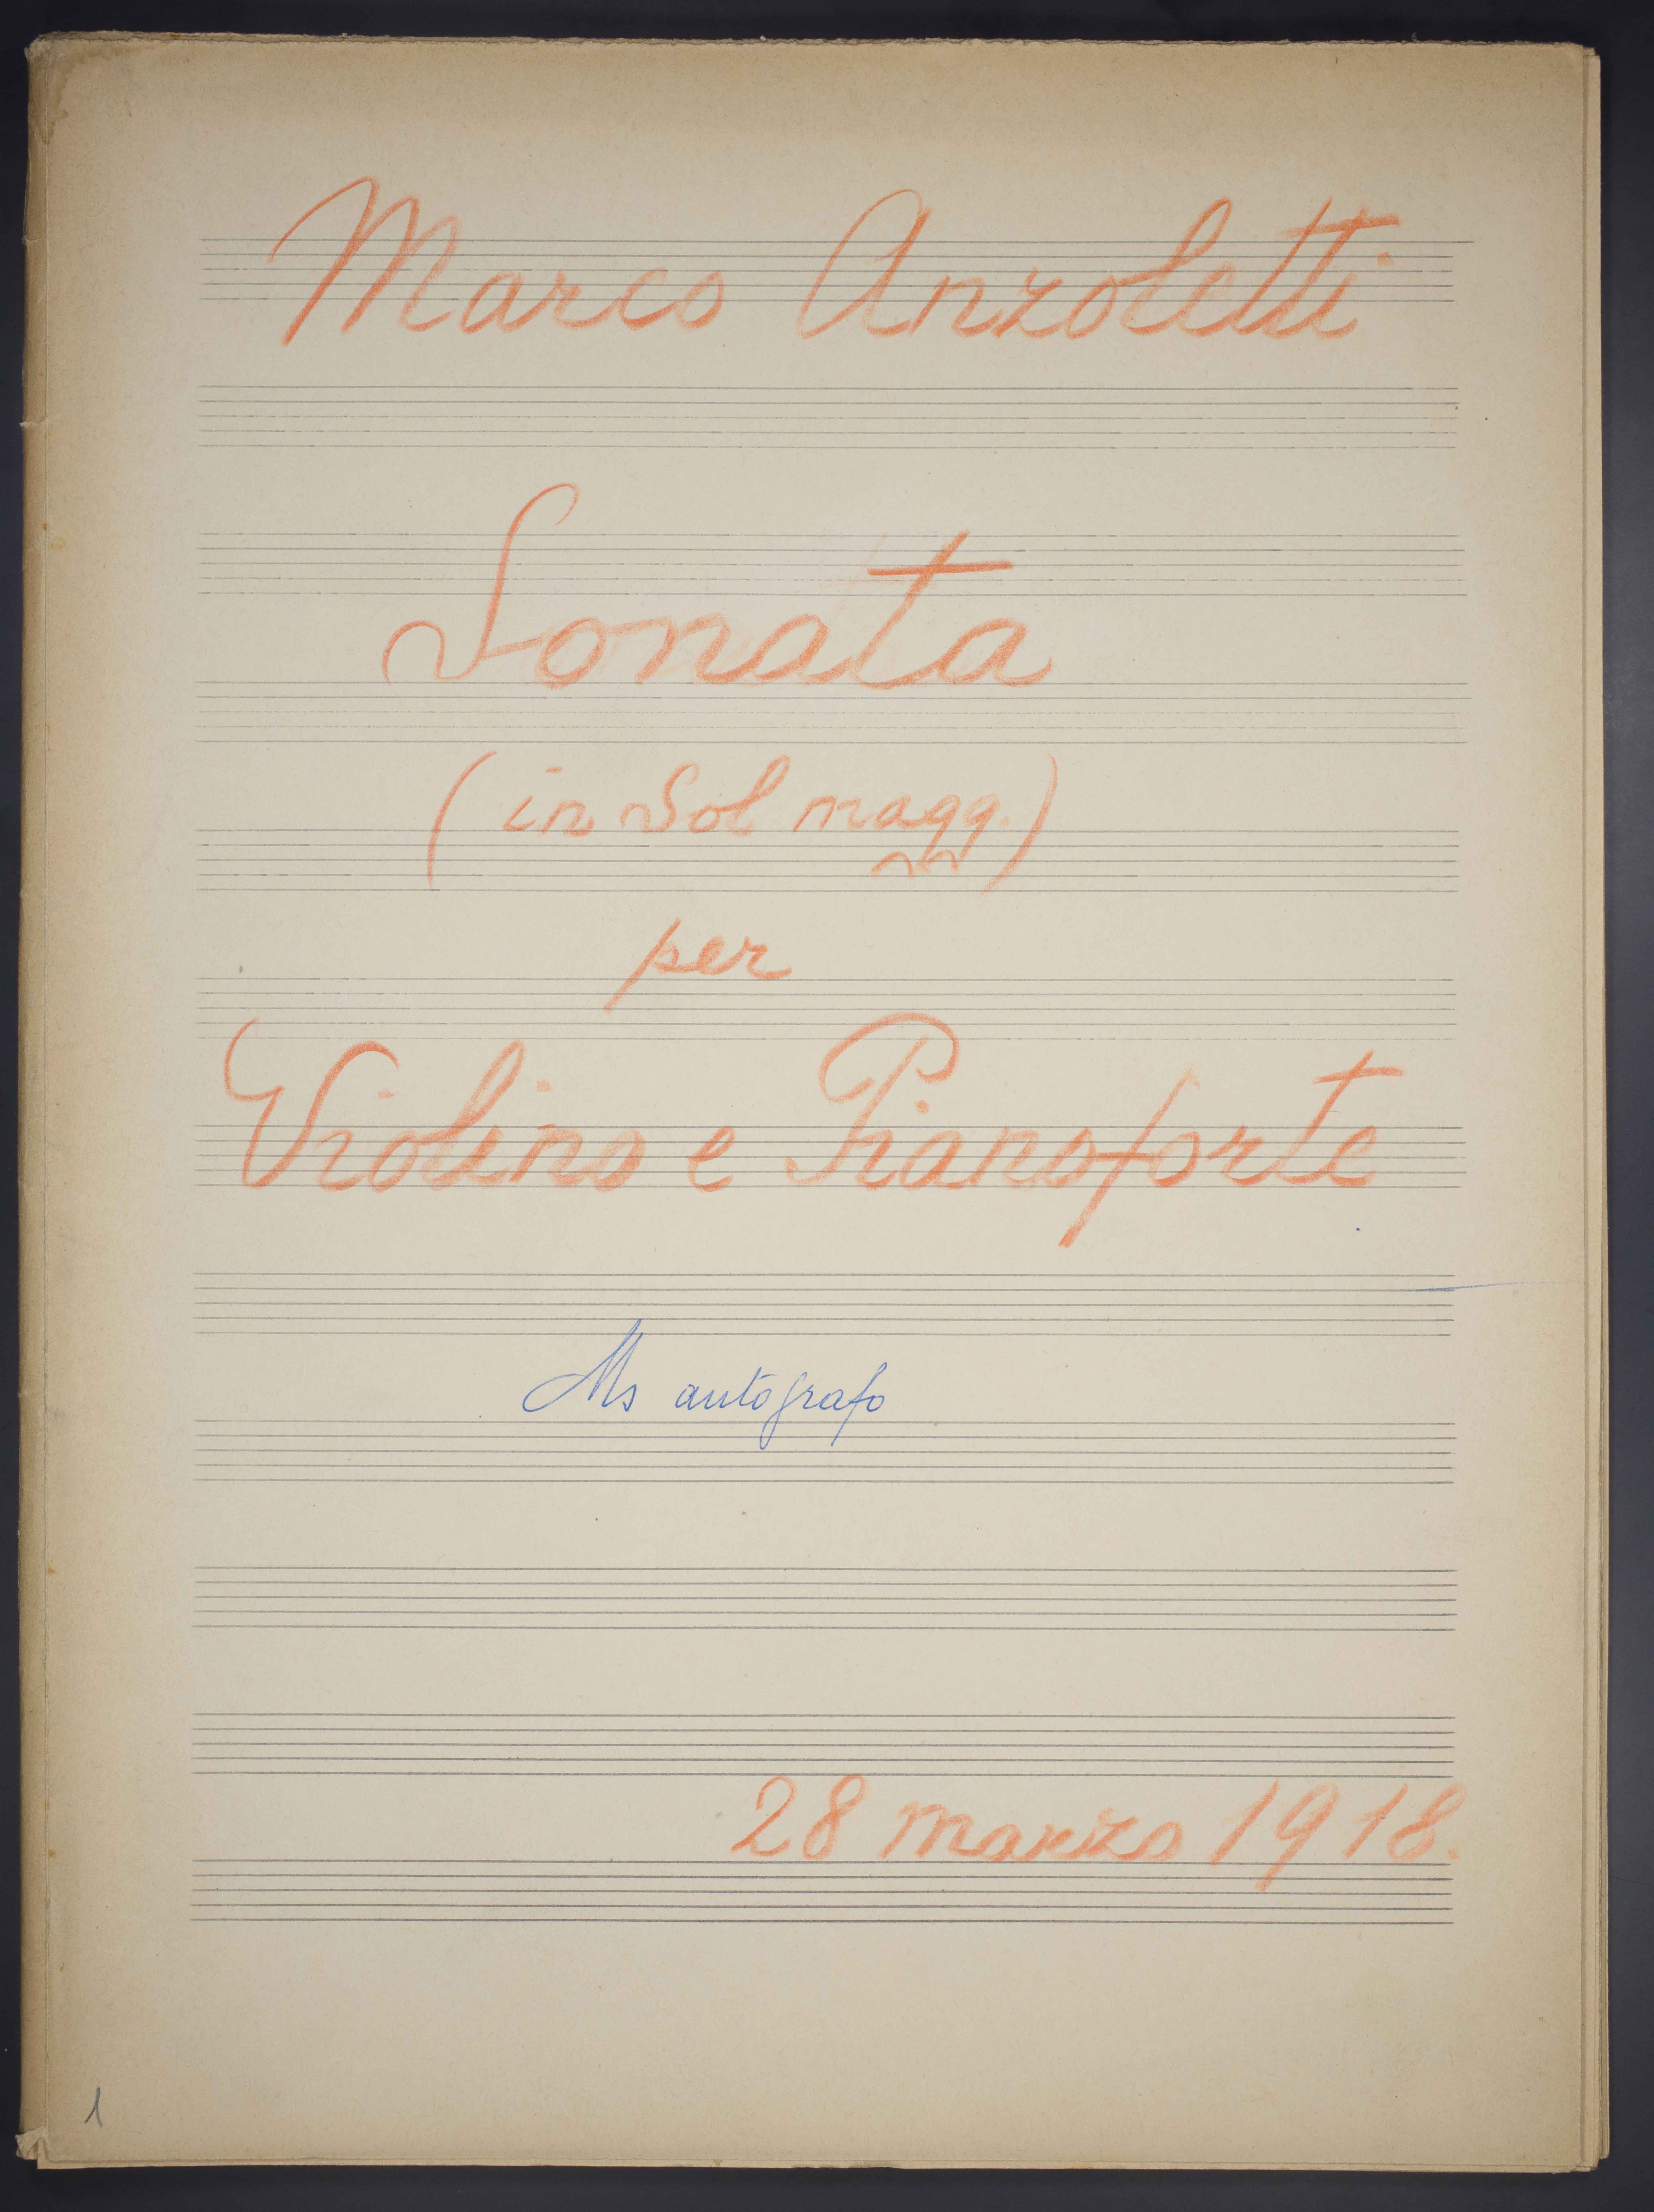 Marco Anzoletti
Sonata
(in Sol magg.)
per
Violino e Pianoforte
Ms autografo
28 marzo 1918.
1